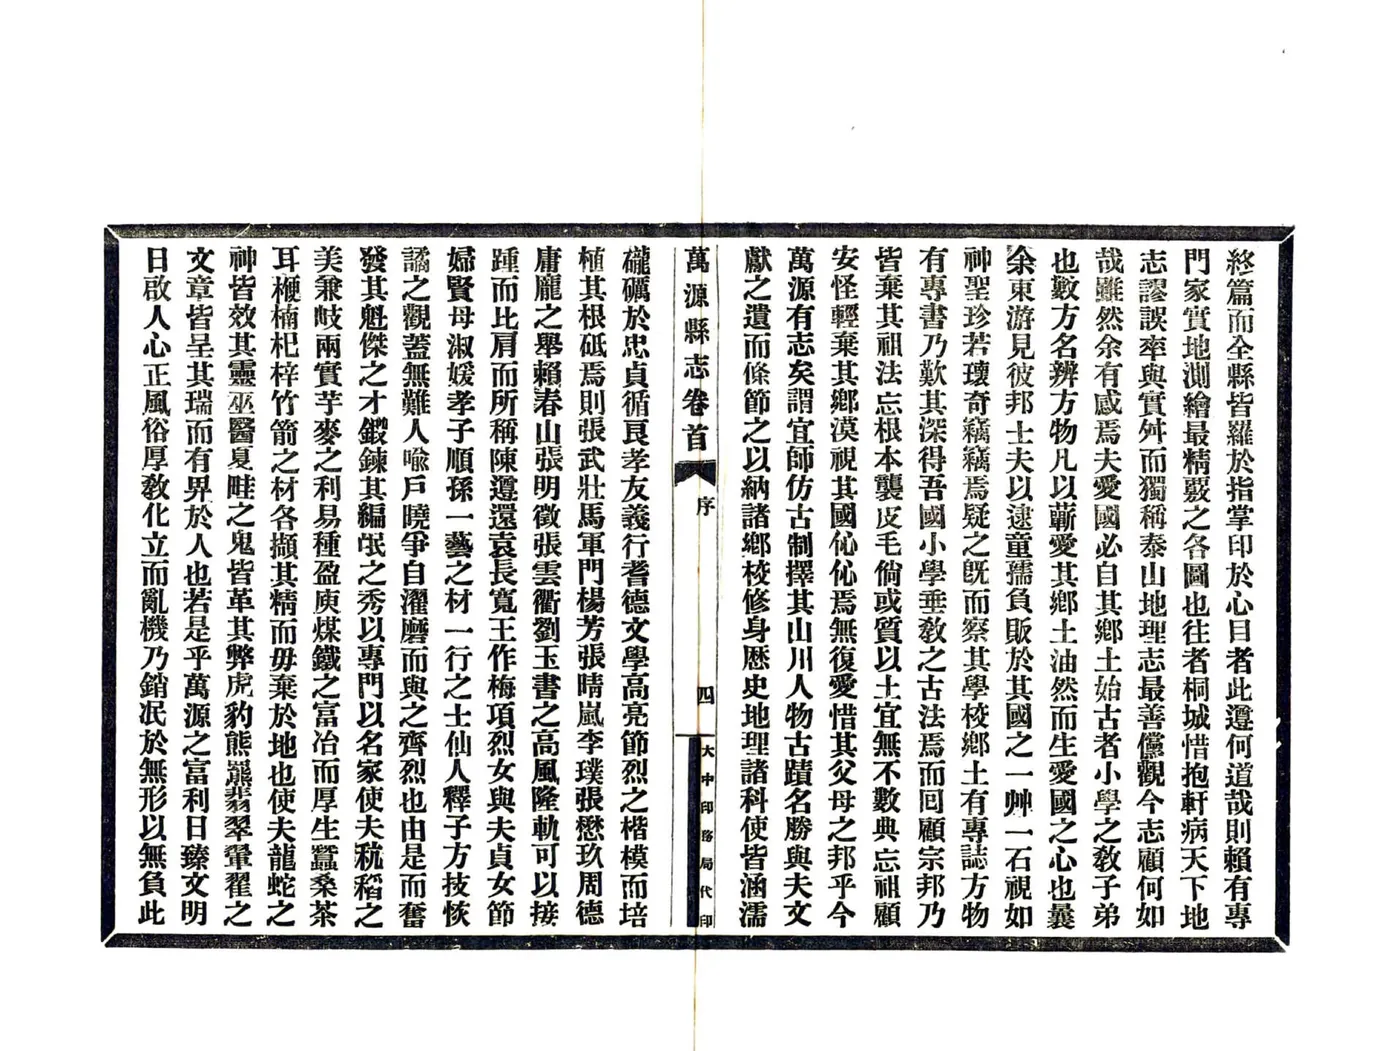 終篇而全縣皆羅於指掌印於心目者此遵何道哉則賴有專
門家實地測繪最精覈之各圖也往者桐城惜抱軒病天下地
志謬誤率與實舛而獨稱泰山地理志最善儻觀今志顧何如
哉雖然余有感焉夫愛國必自其鄉土始古者小學之敎子弟
也數方名辨方物凡以蘄愛其鄉土油然而生愛國之心也曩
余東游見彼邦士夫以逮童孺負販於其國之一艸一石視如
神聖珍若瓌奇竊竊焉疑之旣而察其學校鄉土有專誌方物
有專書乃歎其深得吾國小學垂敎之古法焉而回顧宗邦乃
皆棄其祖法忘根本襲皮毛倘或質以土宜無不數典忘祖顧
安怪輕棄其鄉漠視其國伈伈焉無復愛惜其父母之邦乎今
萬源有志矣謂宜師仿古制擇其山川人物古蹟名勝與夫文
獻之遺而條節之以納諸鄉校修身歷史地理諸科使皆涵濡
萬源縣志卷首 序 四 大中印務局代印
礲礪於忠貞循良孝友義行耆德文學高亮節烈之楷模而培
植其根砥焉則張武壯馬軍門楊芳張晴嵐李璞張懋玖周德
庸龐之舉賴春山張明徵張雲衢劉玉書之高風隆軌可以接
踵而比肩而所稱陳遵還袁長寬王作梅項烈女與夫貞女節
婦賢母淑媛孝子順孫一藝之材一行之士仙人釋子方技恢
譎之觀蓋無難人喩戶曉爭自濯磨而與之齊烈也由是而奮
發其魁傑之才鍛鍊其編氓之秀以專門以名家使夫秔稻之
美兼岐兩實芋麥之利易種盈庾煤鐵之富冶而厚生蠶桑茶
耳楩楠杞梓竹箭之材各擷其精而毋棄於地也使夫龍蛇之
神皆效其靈巫醫夏畦之鬼皆革其弊虎豹熊羆翡翠翬翟之
文章皆呈其瑞而有畀於人也若是乎萬源之富利日臻文明
日啟人心正風俗厚敎化立而亂機乃銷泯於無形以無負此